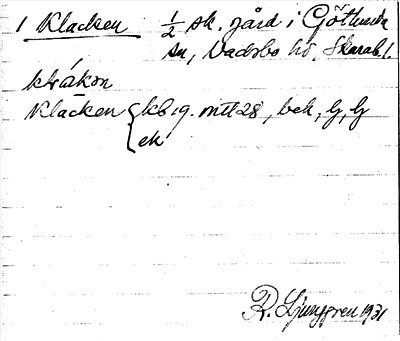 1 Klacken ½ sk. gård i Götlunda
sn, Vadsbo hd, Skarab. l.
kråkọn
Klacken { kb 19. mtl 28, bek, lj, lj
ek
R. Ljunggren 1931